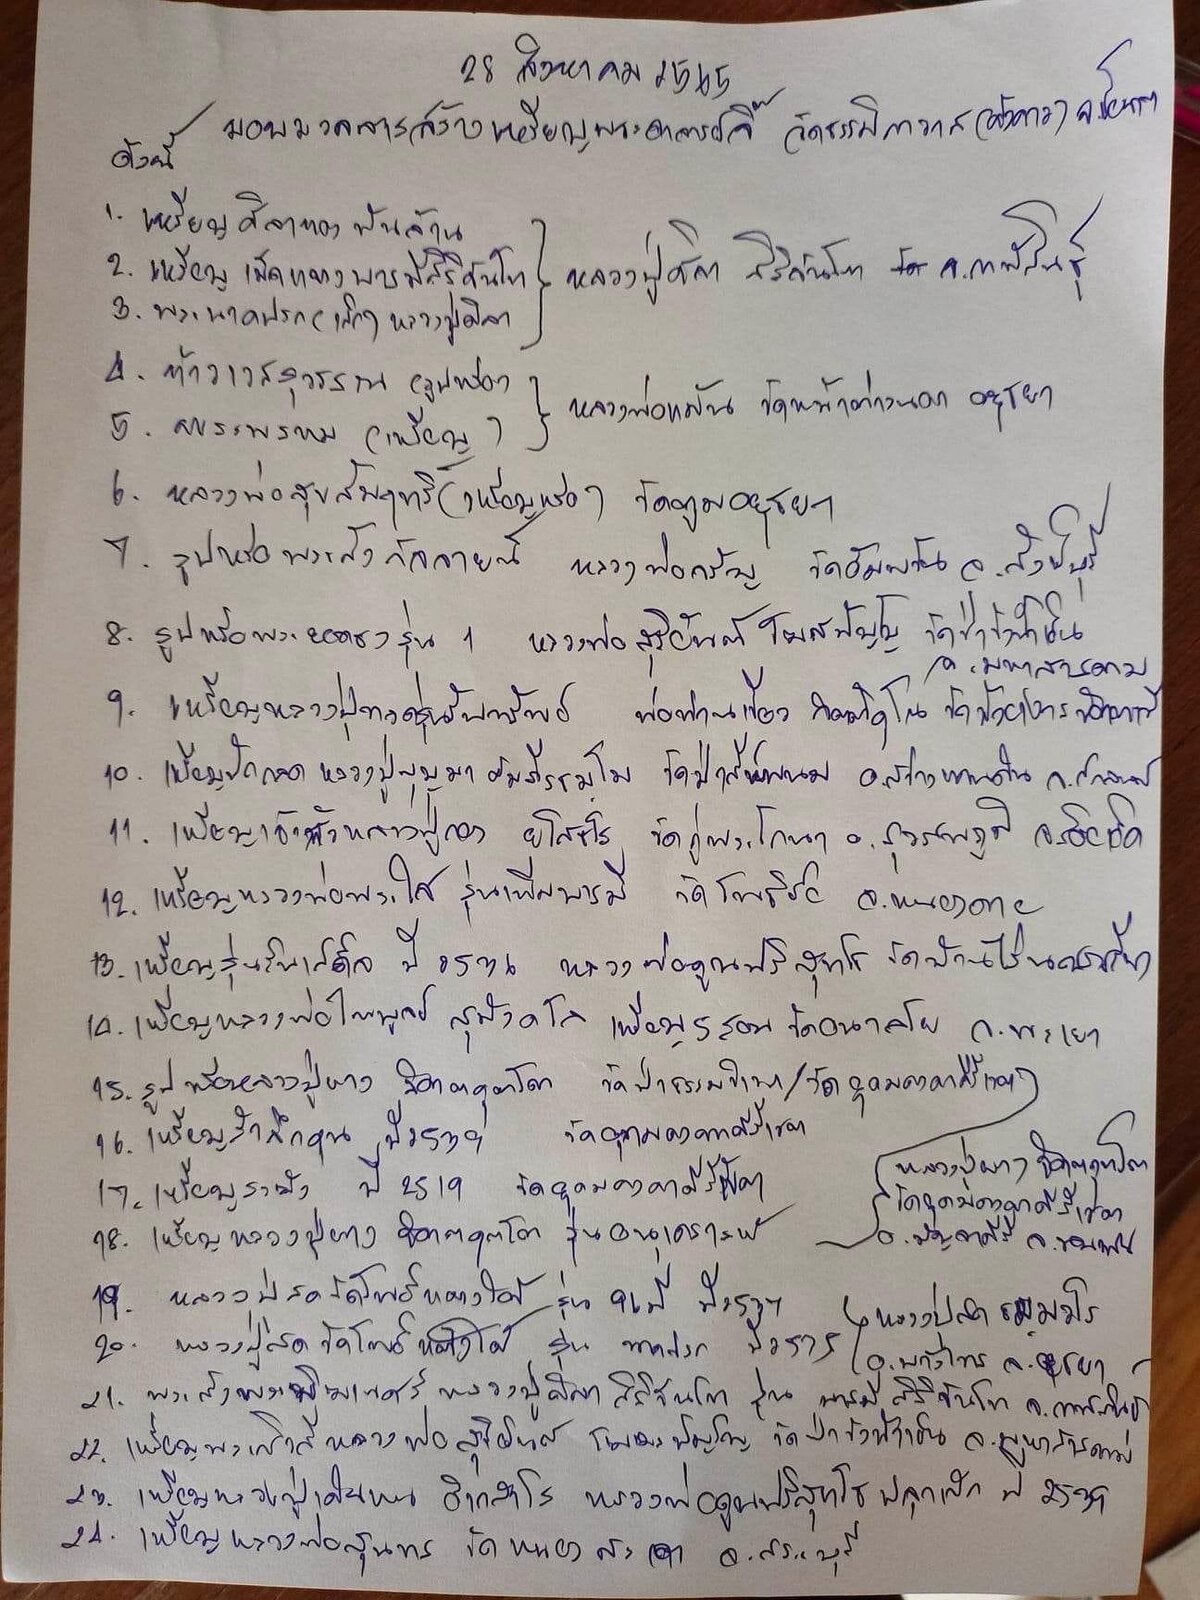 28 สิงหาคม 2565
มอบมวลสารสร้างเหรียญพระอาจารย์ วัดธรรมิกาวาส (ค้างคาว)
ดังนี้
1. เหรียญศิลาทองพันล้าน
2. เหรียญเม็ดแตงบารมีสิริจันโท
3. พระนาคปรก (เล็ก) หลวงปู่ศิลา
หลวงปู่ศิลา สิริจันโท จ.กาฬสินธุ์
4. ท้าวเวสสุวรรณ (รูปหล่อ)
5. พระพรหม (เหรียญ)
หลวงพ่อแม้น วัดหน้าต่างนอก อยุธยา
6. หลวงพ่อสุขสัมฤทธิ์ (เหรียญหล่อ) วัดตูม อยุธยา
7. รูปหล่อพระสังกัจจายน์ หลวงพ่อจรัญ วัดอัมพวัน จ.สิงห์บุรี
8. รูปหล่อพระ รุ่น 1 หลวงพ่อสุริยันต์ โฆสปัญโญ วัดป่าวังน้ำเย็น
จ.มหาสารคาม
9. เหรียญหลวงปู่ทวดรุ่นรับทรัพย์ พ่อท่านเขียว กิตติคุโณ วัดห้วยเงาะ ปัตตานี
10. เหรียญปั๊ก หลวงปู่บุญมา คัมภีรธัมโม วัดป่าสีห์พนม อ.สว่างแดนดิน จ.สกลนคร
11. เหรียญเจ้าสัวหลวงปู่ทอง วัดกู่พระโกนา อ.สุวรรณภูมิ จ.ร้อยเอ็ด
12. เหรียญหลวงพ่อพระใส รุ่นเพิ่มบารมี วัดโพธิ์ชัย จ.หนองคาย
13. เหรียญรุ่น ปี หลวงพ่อคูณ ปริสุทโธ วัดบ้านไร่ นครราชสีมา
14. เหรียญหลวงพ่อไพบูลย์ สุมังคโล เหรียญ วัดอนาลโย จ.พะเยา
15. รูปหล่อหลวงปู่ผาง จิตตคุตโต วัดป่าธรรม / วัดอุดมคงคาคีรีเขต
16. เหรียญรำลึกคุณ ปี วัดอุดมคงคาคีรีเขต
17. เหรียญระฆัง ปี 2519 วัดอุดมคงคาคีรีเขต
18. เหรียญหลวงปู่ผาง จิตตคุตโต รุ่นอนุเคราะห์
หลวงปู่ผาง จิตตคุตโต
วัดอุดมคงคาคีรีเขต
อ.มัญจาคีรี จ.ขอนแก่น
19. หลวงปู่สด วัดโพธิ์แตงใต้ รุ่น ปี
20. หลวงปู่สด วัดโพธิ์แตงใต้ รุ่น นาคปรก ปี 2535
หลวงปู่สด ธมฺมวโร
อ.บางไทร จ.อยุธยา
21. พระสังฆ หลวงปู่ศิลา สิริจันโท รุ่น บารมีสิริจันโท จ.กาฬสินธุ์
22. เหรียญพระ หลวงพ่อสุริยันต์ โฆสปัญโญ วัดป่าวังน้ำเย็น จ.มหาสารคาม
23. เหรียญหลวงปู่ หลวงพ่อคูณ ปริสุทโธ ปลุกเสก ปี
24. เหรียญหลวงพ่อสุนทร วัดหนองสะ จ.สระบุรี